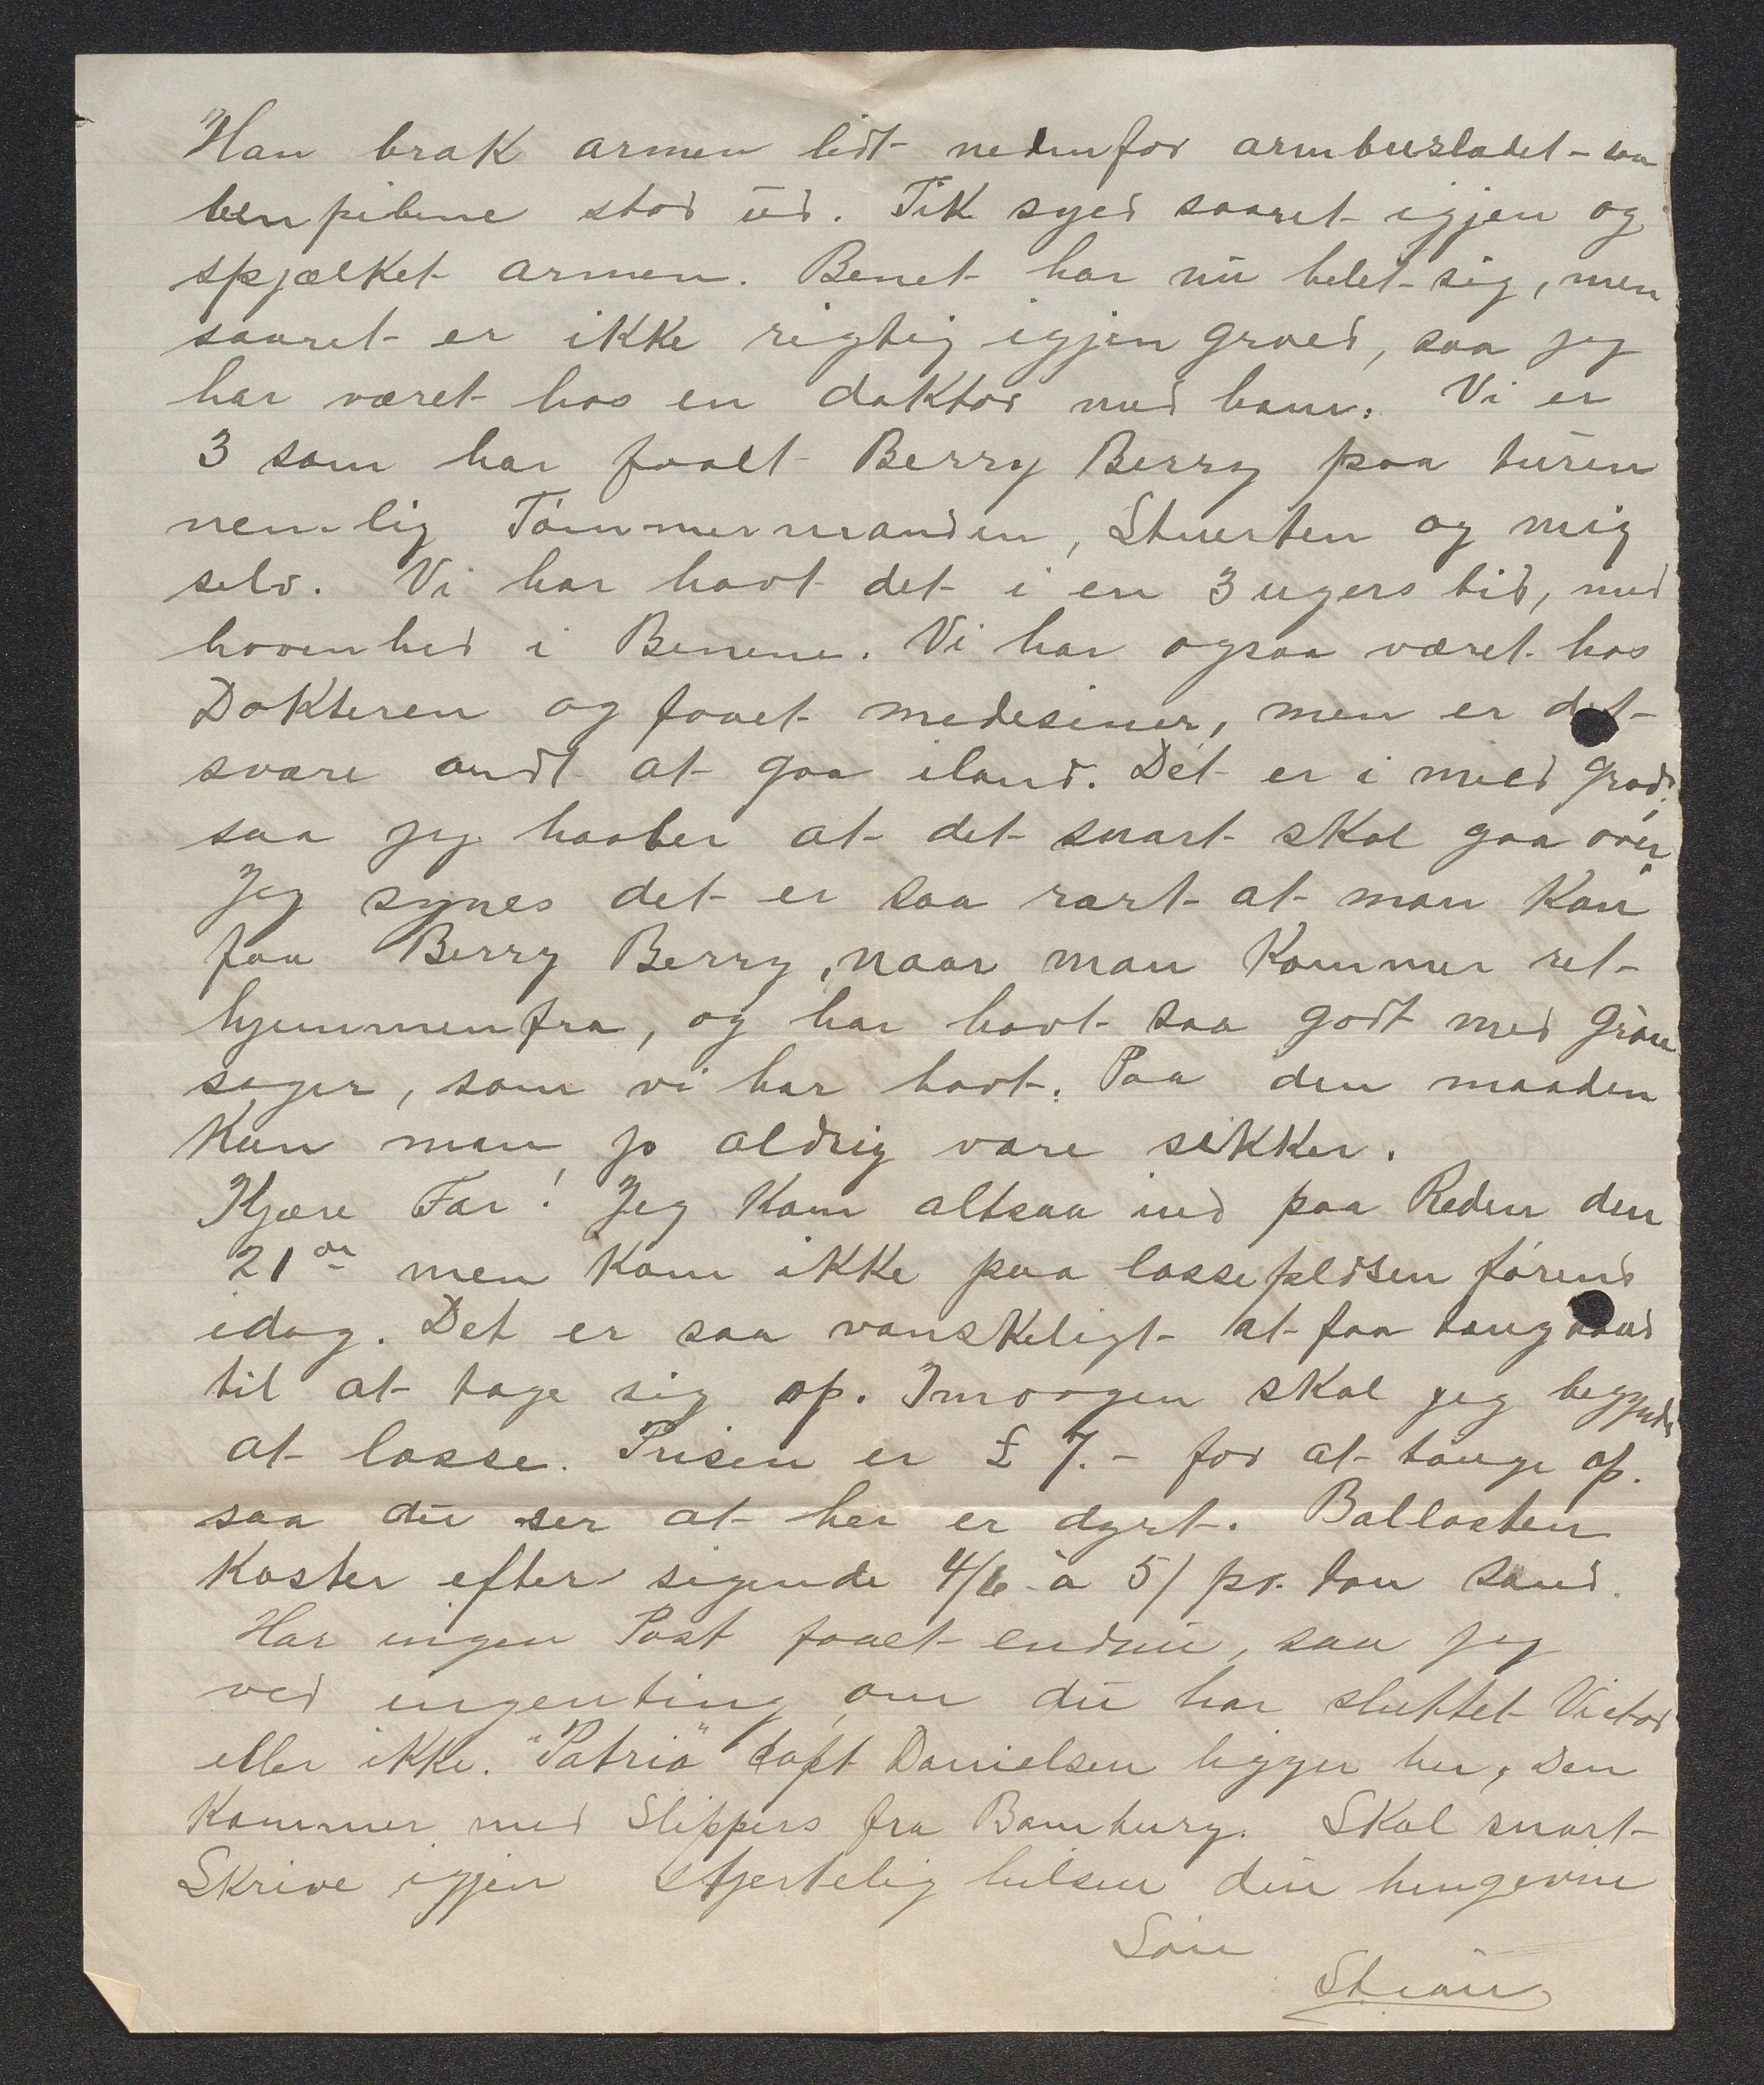 Han brak armen lidt nedenfor armbusladet - saa
benpibene stod ud. Fik syed saaret igjen og
spjælket armen. Benet har nu helet sig, men
saaret er ikke rigtig igjen groed, saa jeg
har været hos en doktor med ham. Vi er
3 som har faaet Berry Berry paa turen
nemlig Tømmermanden, Stuerten og mig
selv. Vi har havt det i en 3 ugers tid, med
hovenhed i Benene. Vi har ogsaa været hos
Dokteren og faaet medesiner, men er det
svære ondt at gaa iland. Det er i mild grad,
saa jeg haaber at det snart skal gaa over.
Jeg synes det er saa rart at man kan
faa Berry Berry, naar man kommer ret
hjemmenfra, og har havt saa godt med grøn
sager, som vi har havt. Paa den maaden
kan man jo aldrig være sikker.
Kjære Far! Jeg kom altsaa ind paa Reden den
21de men kom ikke paa lossepldsen førend
idag. Det er saa vanskeligt at faa taugbaad
til at tage sig op. Imorgen skal jeg begynde
at losse. Prisen er £ 7.- for at tauge op.
saa du ser at her er dyrt. Ballasten
koster efter sigende 4/6 à 5/ pr. ton sand.
Har ingen Post faaet endnu, saa jeg
ved ingenting om du har sluttet Victor
eller ikke. "Patria" Capt Danielsen ligger her, den
kommer med Slippers fra Bambury. Skal snart
Skrive igjen Hjertelig hilsen din hengivne
Søn